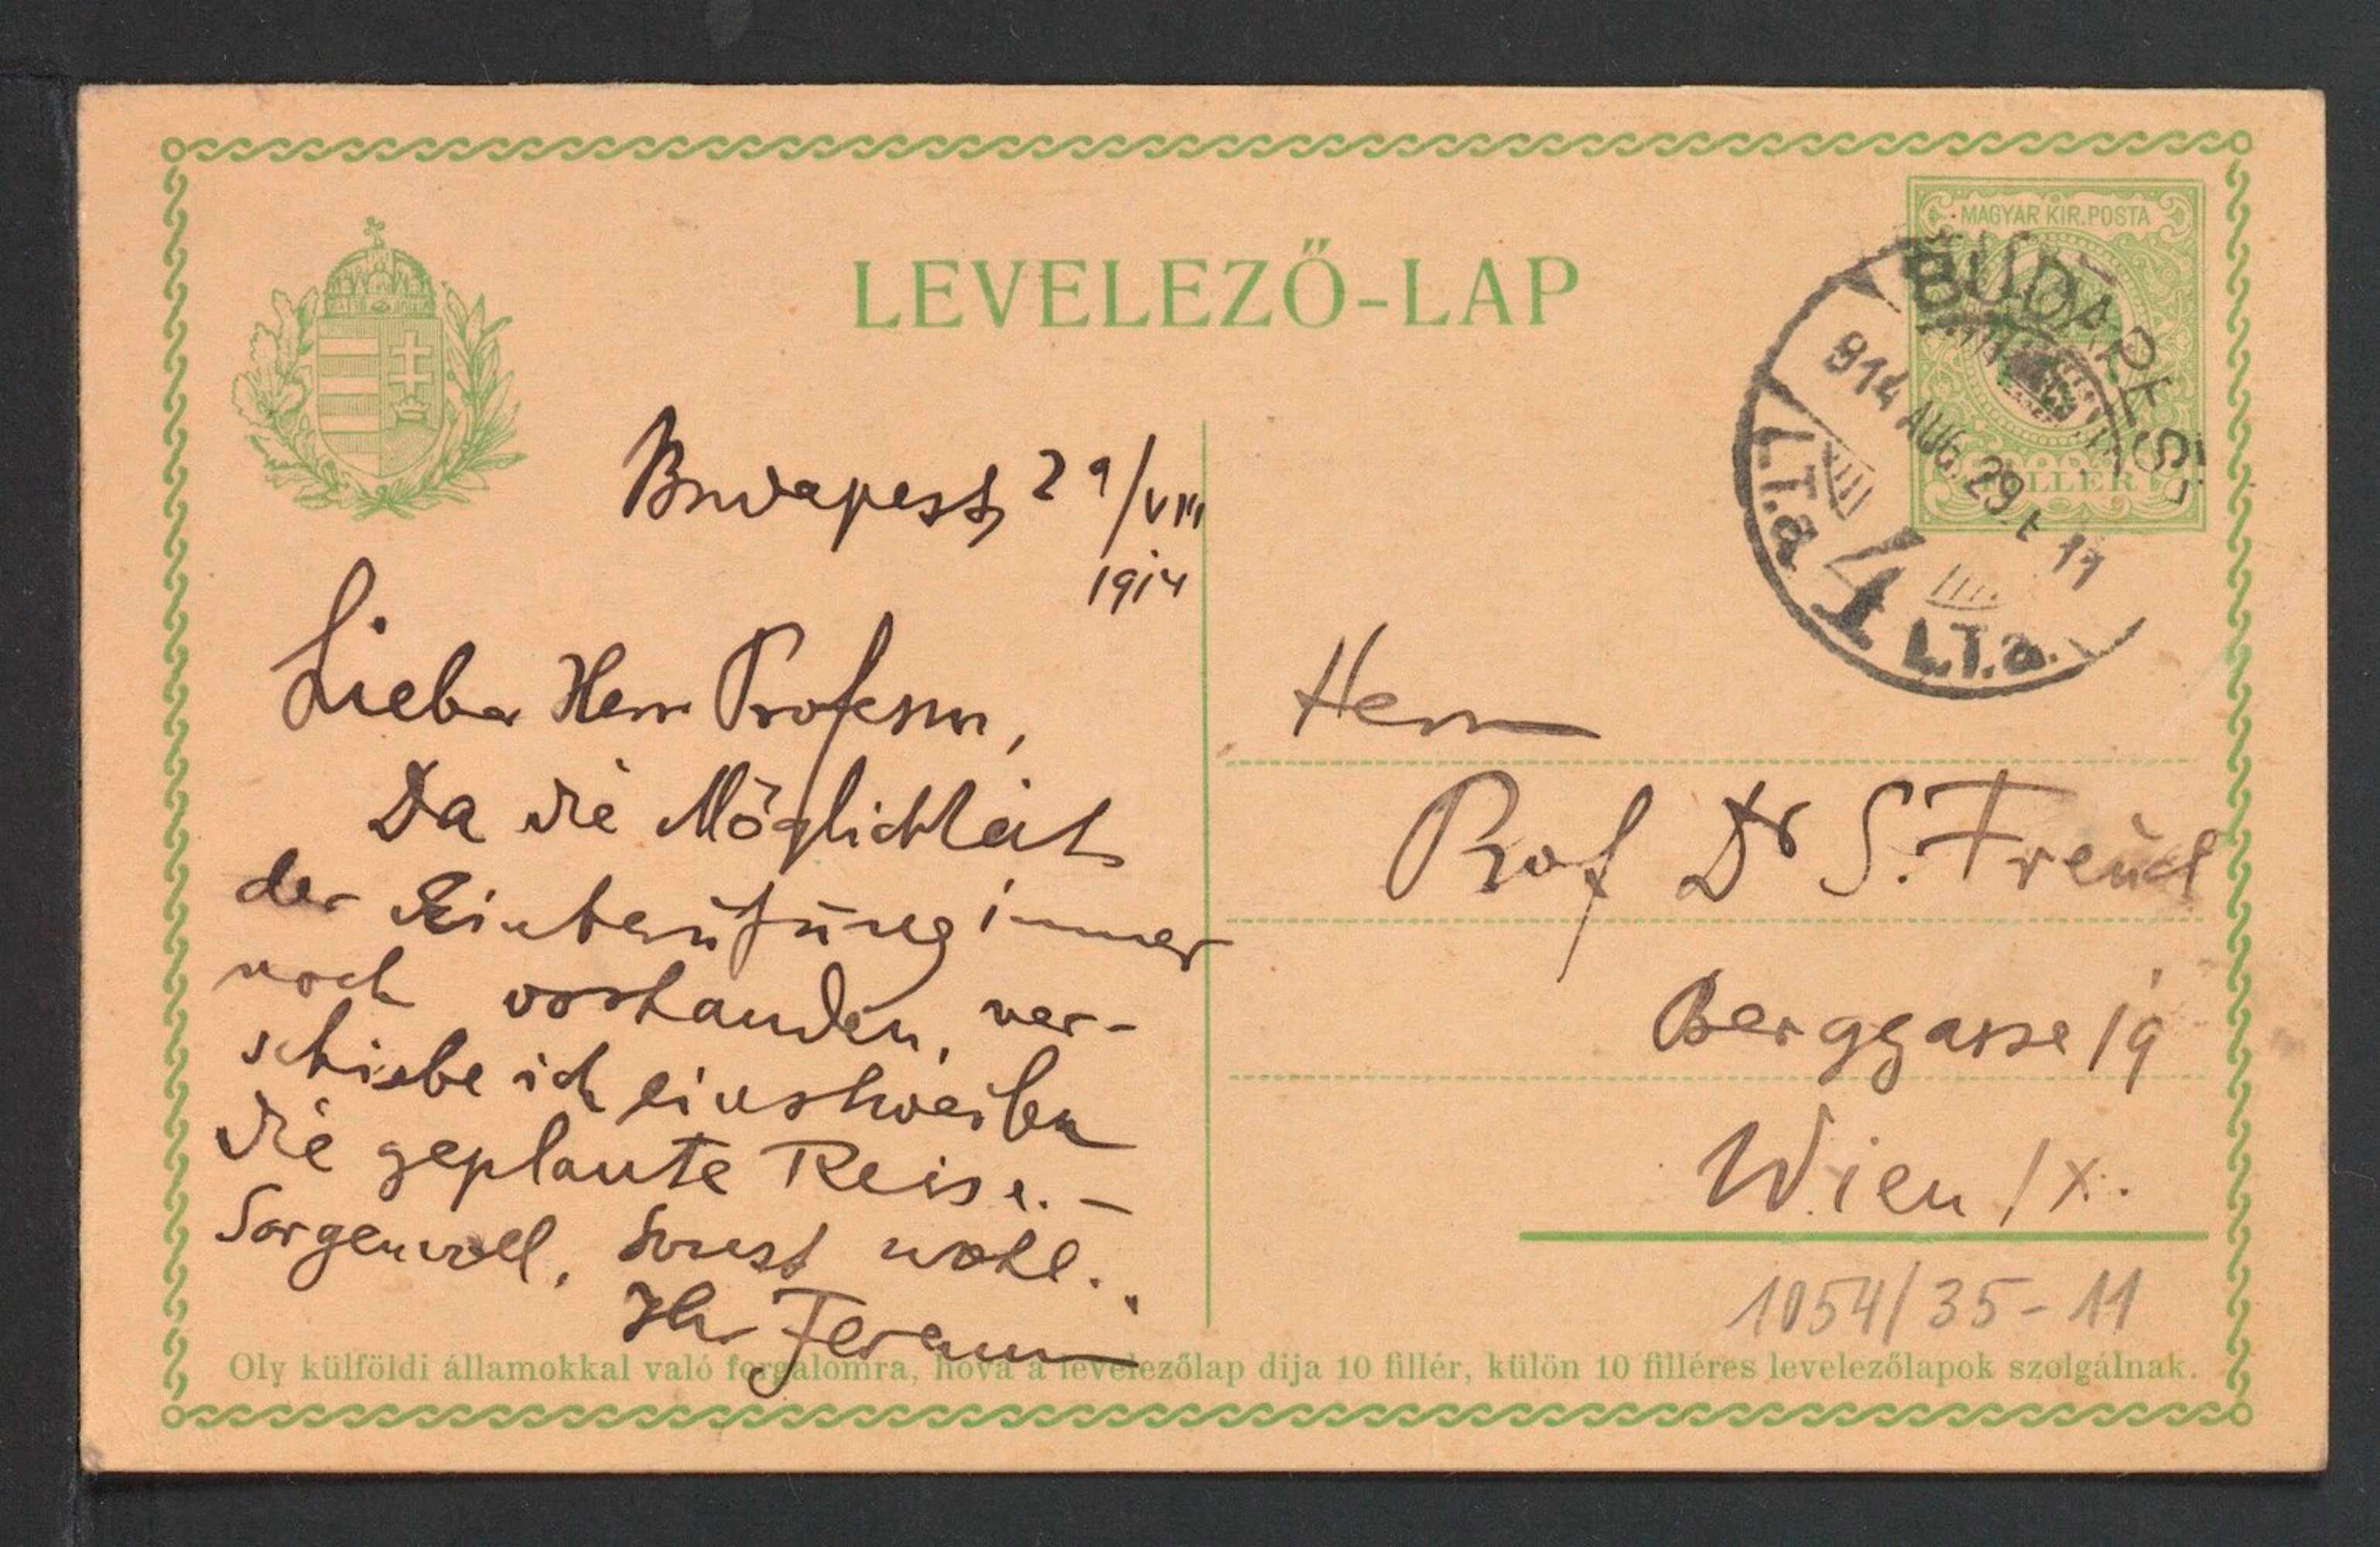 LEVELEZŐ-LAP
MAGYAR KIR. POSTA
FILLÉR
BUDAPEST
914 AUG. 29. E 11
I.T.a 4 I.T.a.
Budapest, 29/VIII
1914
Lieber Herr Professor,
Da die Möglichkeit
der Einberufung immer
noch vorhanden, ver-
schiebe ich einstweilen
die geplante Reise. –
Sorgenvoll, sonst wohl.
Ihr Ferenczi
Herrn
Prof Dr S. Freud
Berggasse 19
Wien IX.
1054/35-11
Oly külföldi államokkal való forgalomra, hova a levelezőlap dija 10 fillér, külön 10 filléres levelezőlapok szolgálnak.